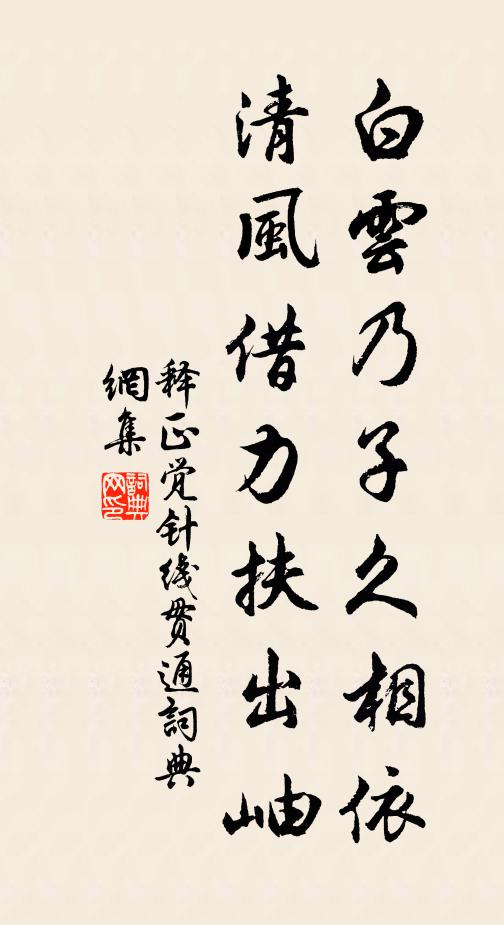 白雲乃子久相依
清風借力扶出岫
释正觉针线贯通詞典
網集
詞典
网印